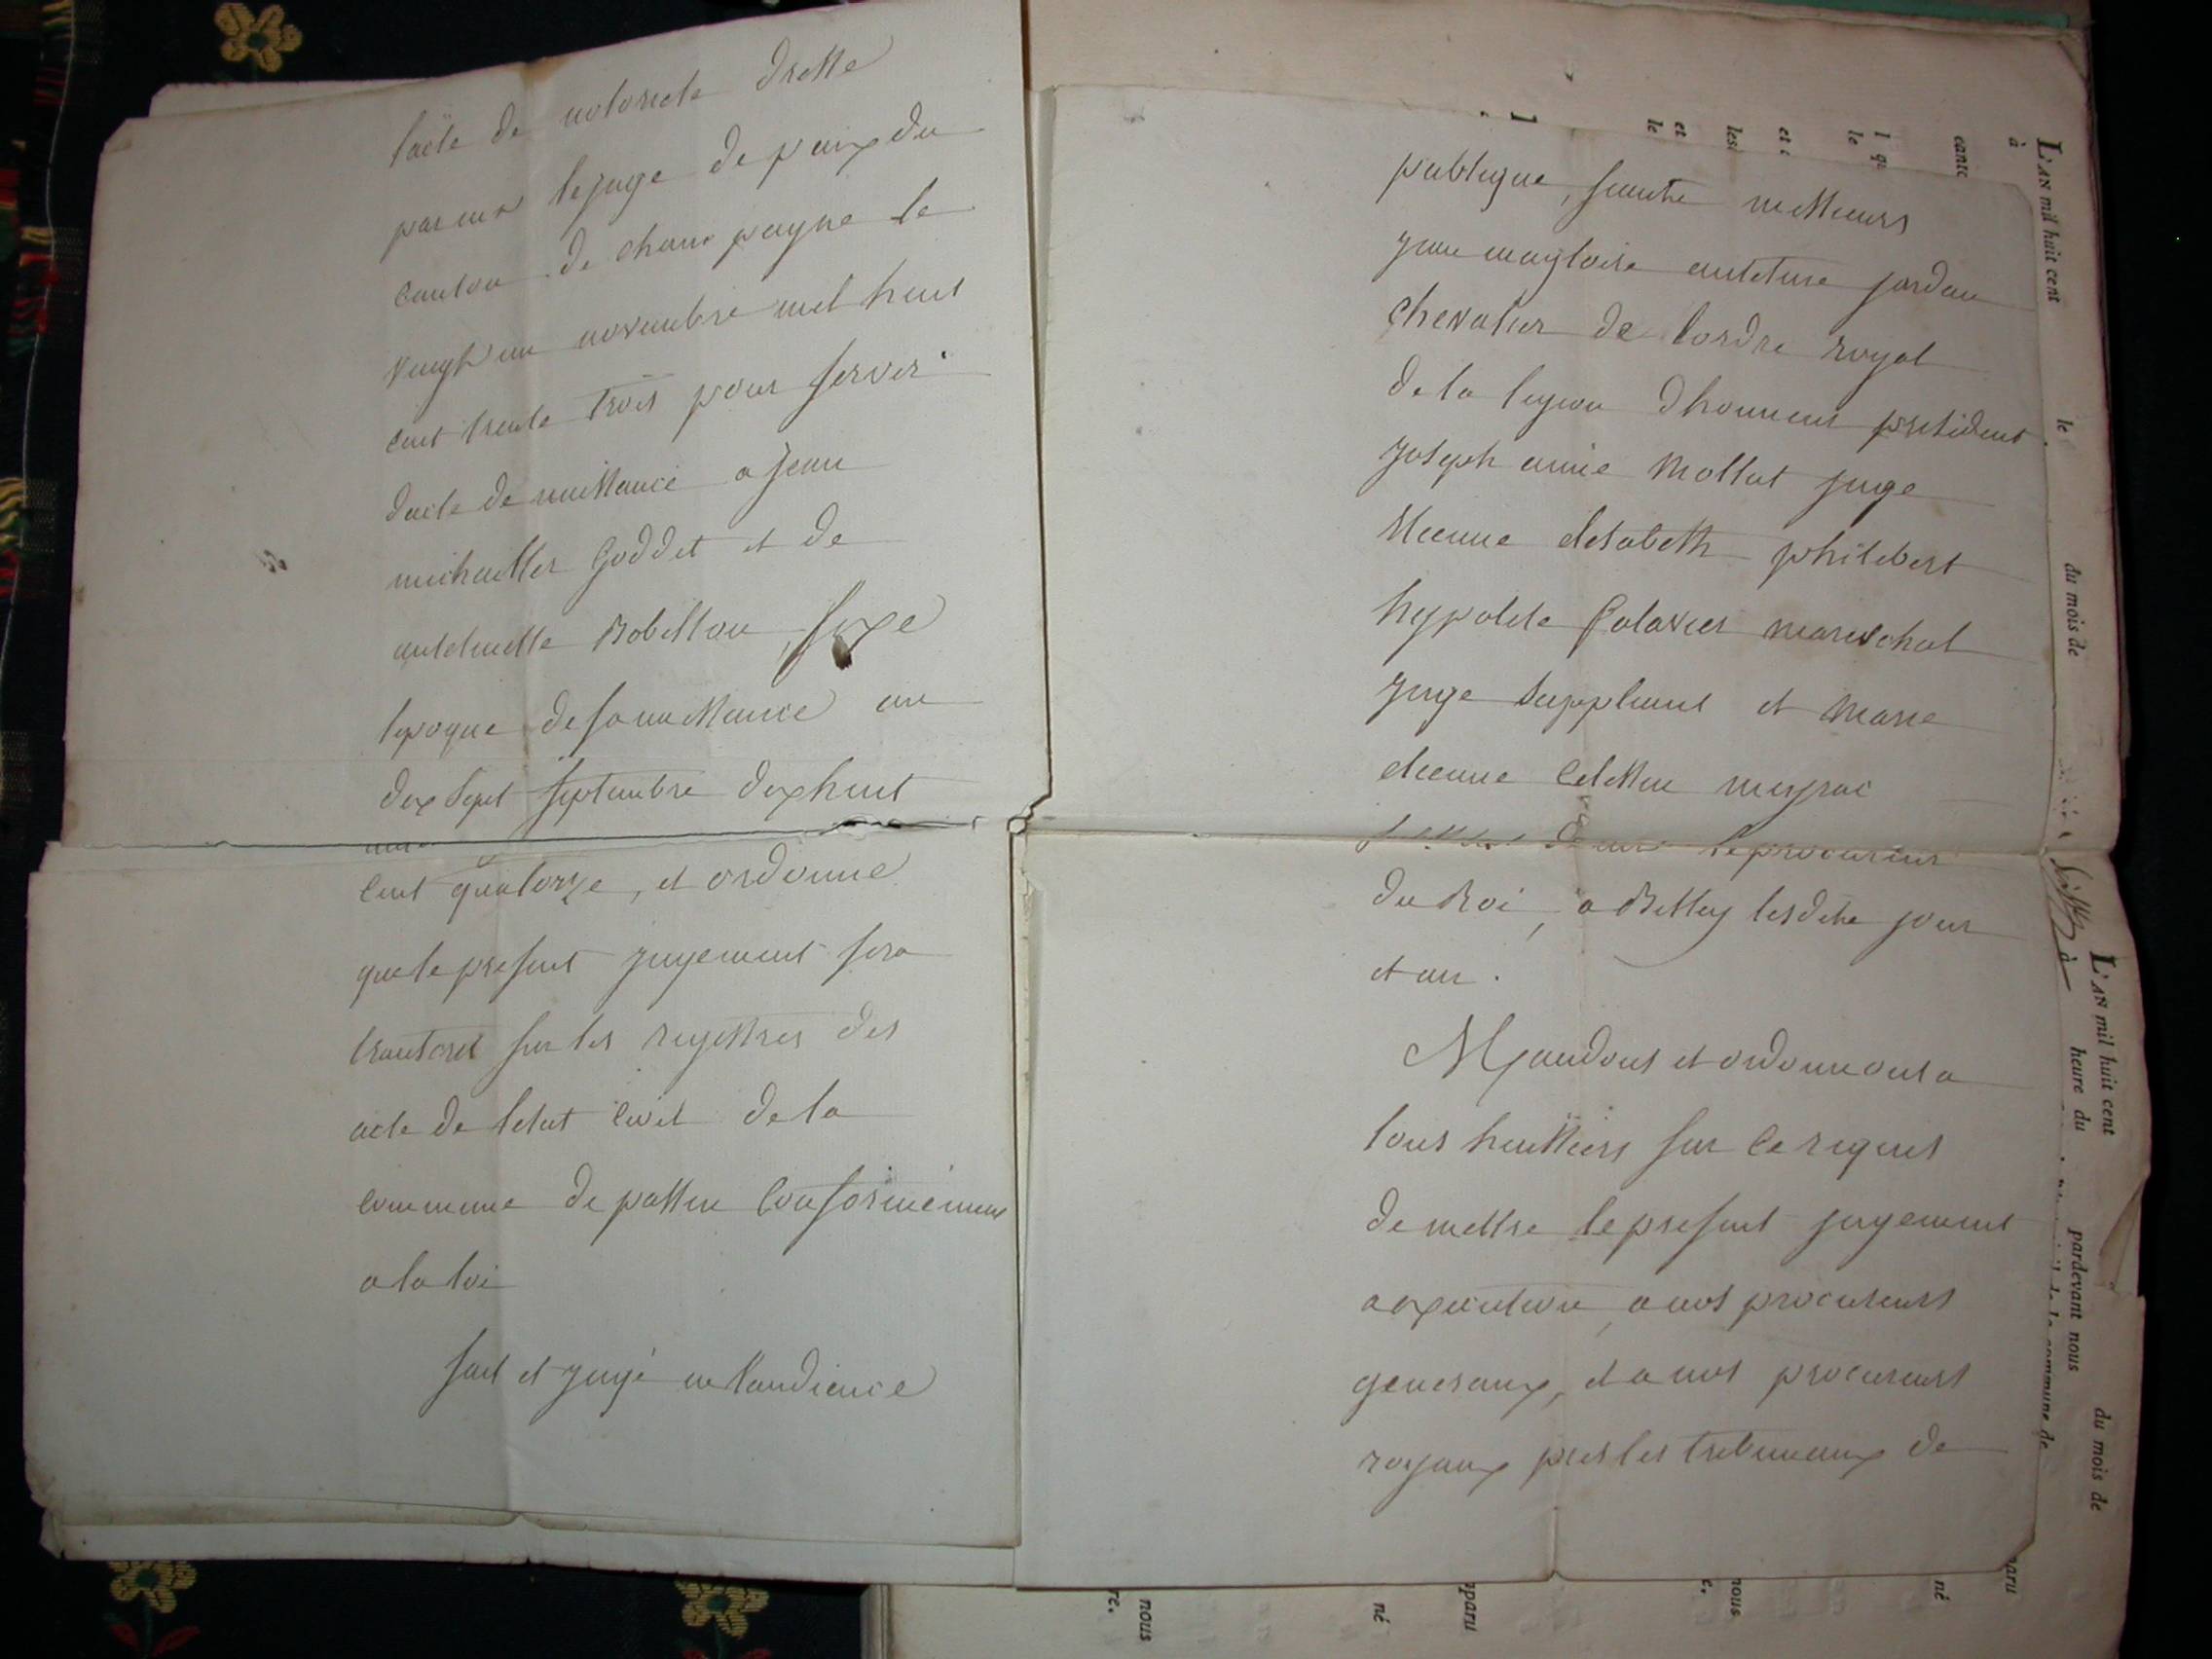 l'acte de notoriete dressé
par mr le juge de paix du
canton de champagne le
vingt un novembre mil huit
cent trente trois pour servir
dacte de naissance a jean
michaeller Goddet et de
antoinette Robellou, fixe
lepoque de sa naissance au
dix sept septembre dix huit
cent quatorze, et ordonne
que le present jugement sera
transcrit sur les registres des
acte de letat civil de la
commune de passin conformément
a la loi
fait et jugé en laudience
publique, seante messieurs
jean magloire antelme jordan
chevalier de lordre royal
de la legion dhonneur president
joseph aimé Mollat juge
etienne elisabeth philibert
hypolite marechal
juge suppleant et
etienne
le procureur
du Roi, a Belley lesdits jour
et an.
Mandons et ordonnons a
tous huissiers sur ce requis
de mettre le present jugement
a execution, a nos procureurs
generaux, et a nos procureurs
royaux pres les tribunaux de
L'AN mil huit cent le du mois de
à
canto
le
et
lesi
et
le
L'AN mil huit cent du mois de
à heure du pardevant nous
de la commune de
paru
né
nous
paru
né
nous
re.